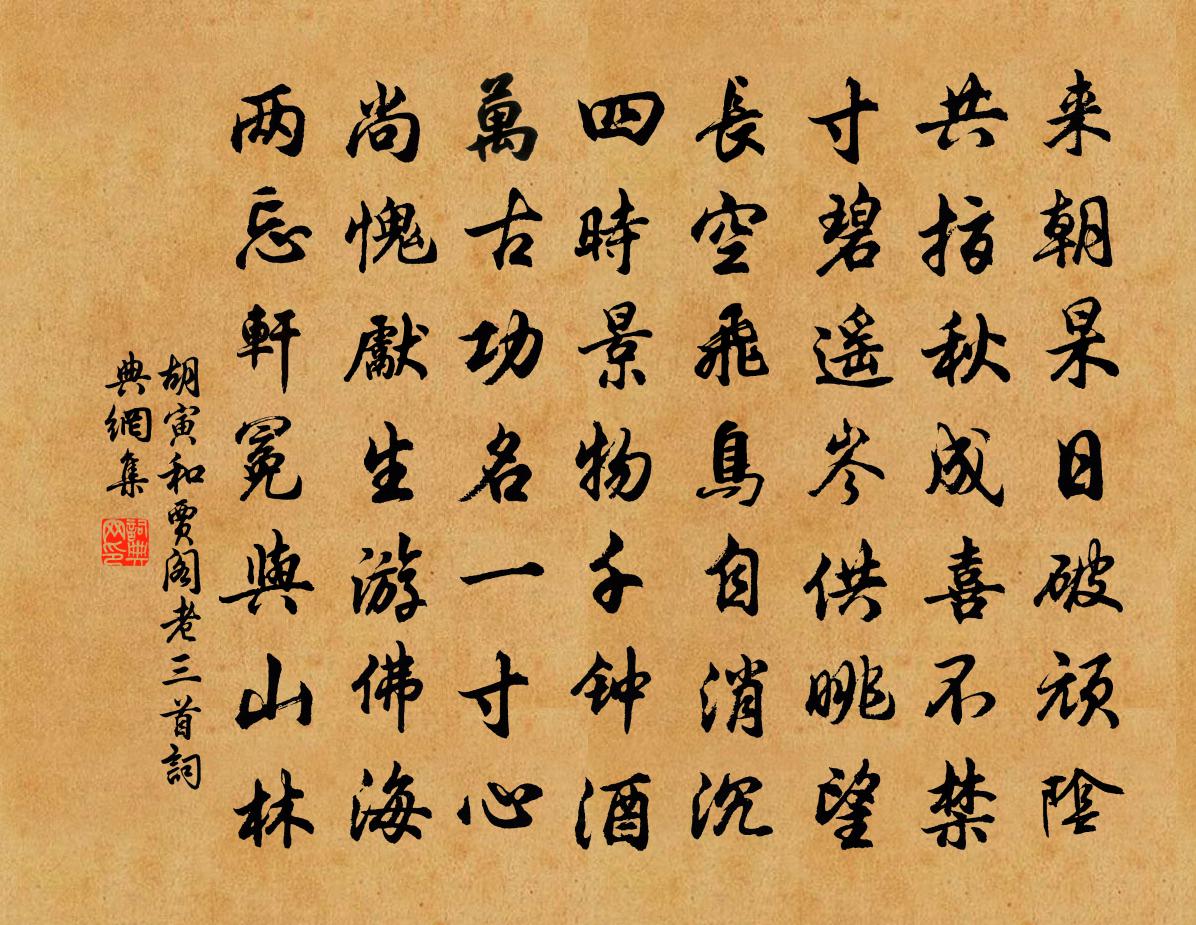 来朝杲日破顽阴
共指秋成喜不禁
寸碧遥岑供眺望
長空飛鳥自消沉
四時景物千钟酒
萬古功名一寸心
尚愧獻生游佛海
两忘軒冕與山林
胡寅和贾阁老三首詞
典網集
詞典网印